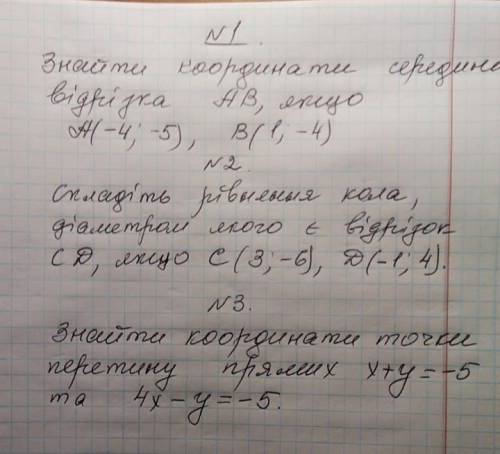 №1.
Знайти координати середина
відрізка АВ, якщо
А(-4; -5), В(1; -4)
№2.
Складіть рівняння кола,
діаметром якого є відрізок
CD, якщо С(3; -6), D(-1; 4).
№3.
Знайти координати точки
перетину прямих x+y=-5
та 4x-y=-5.